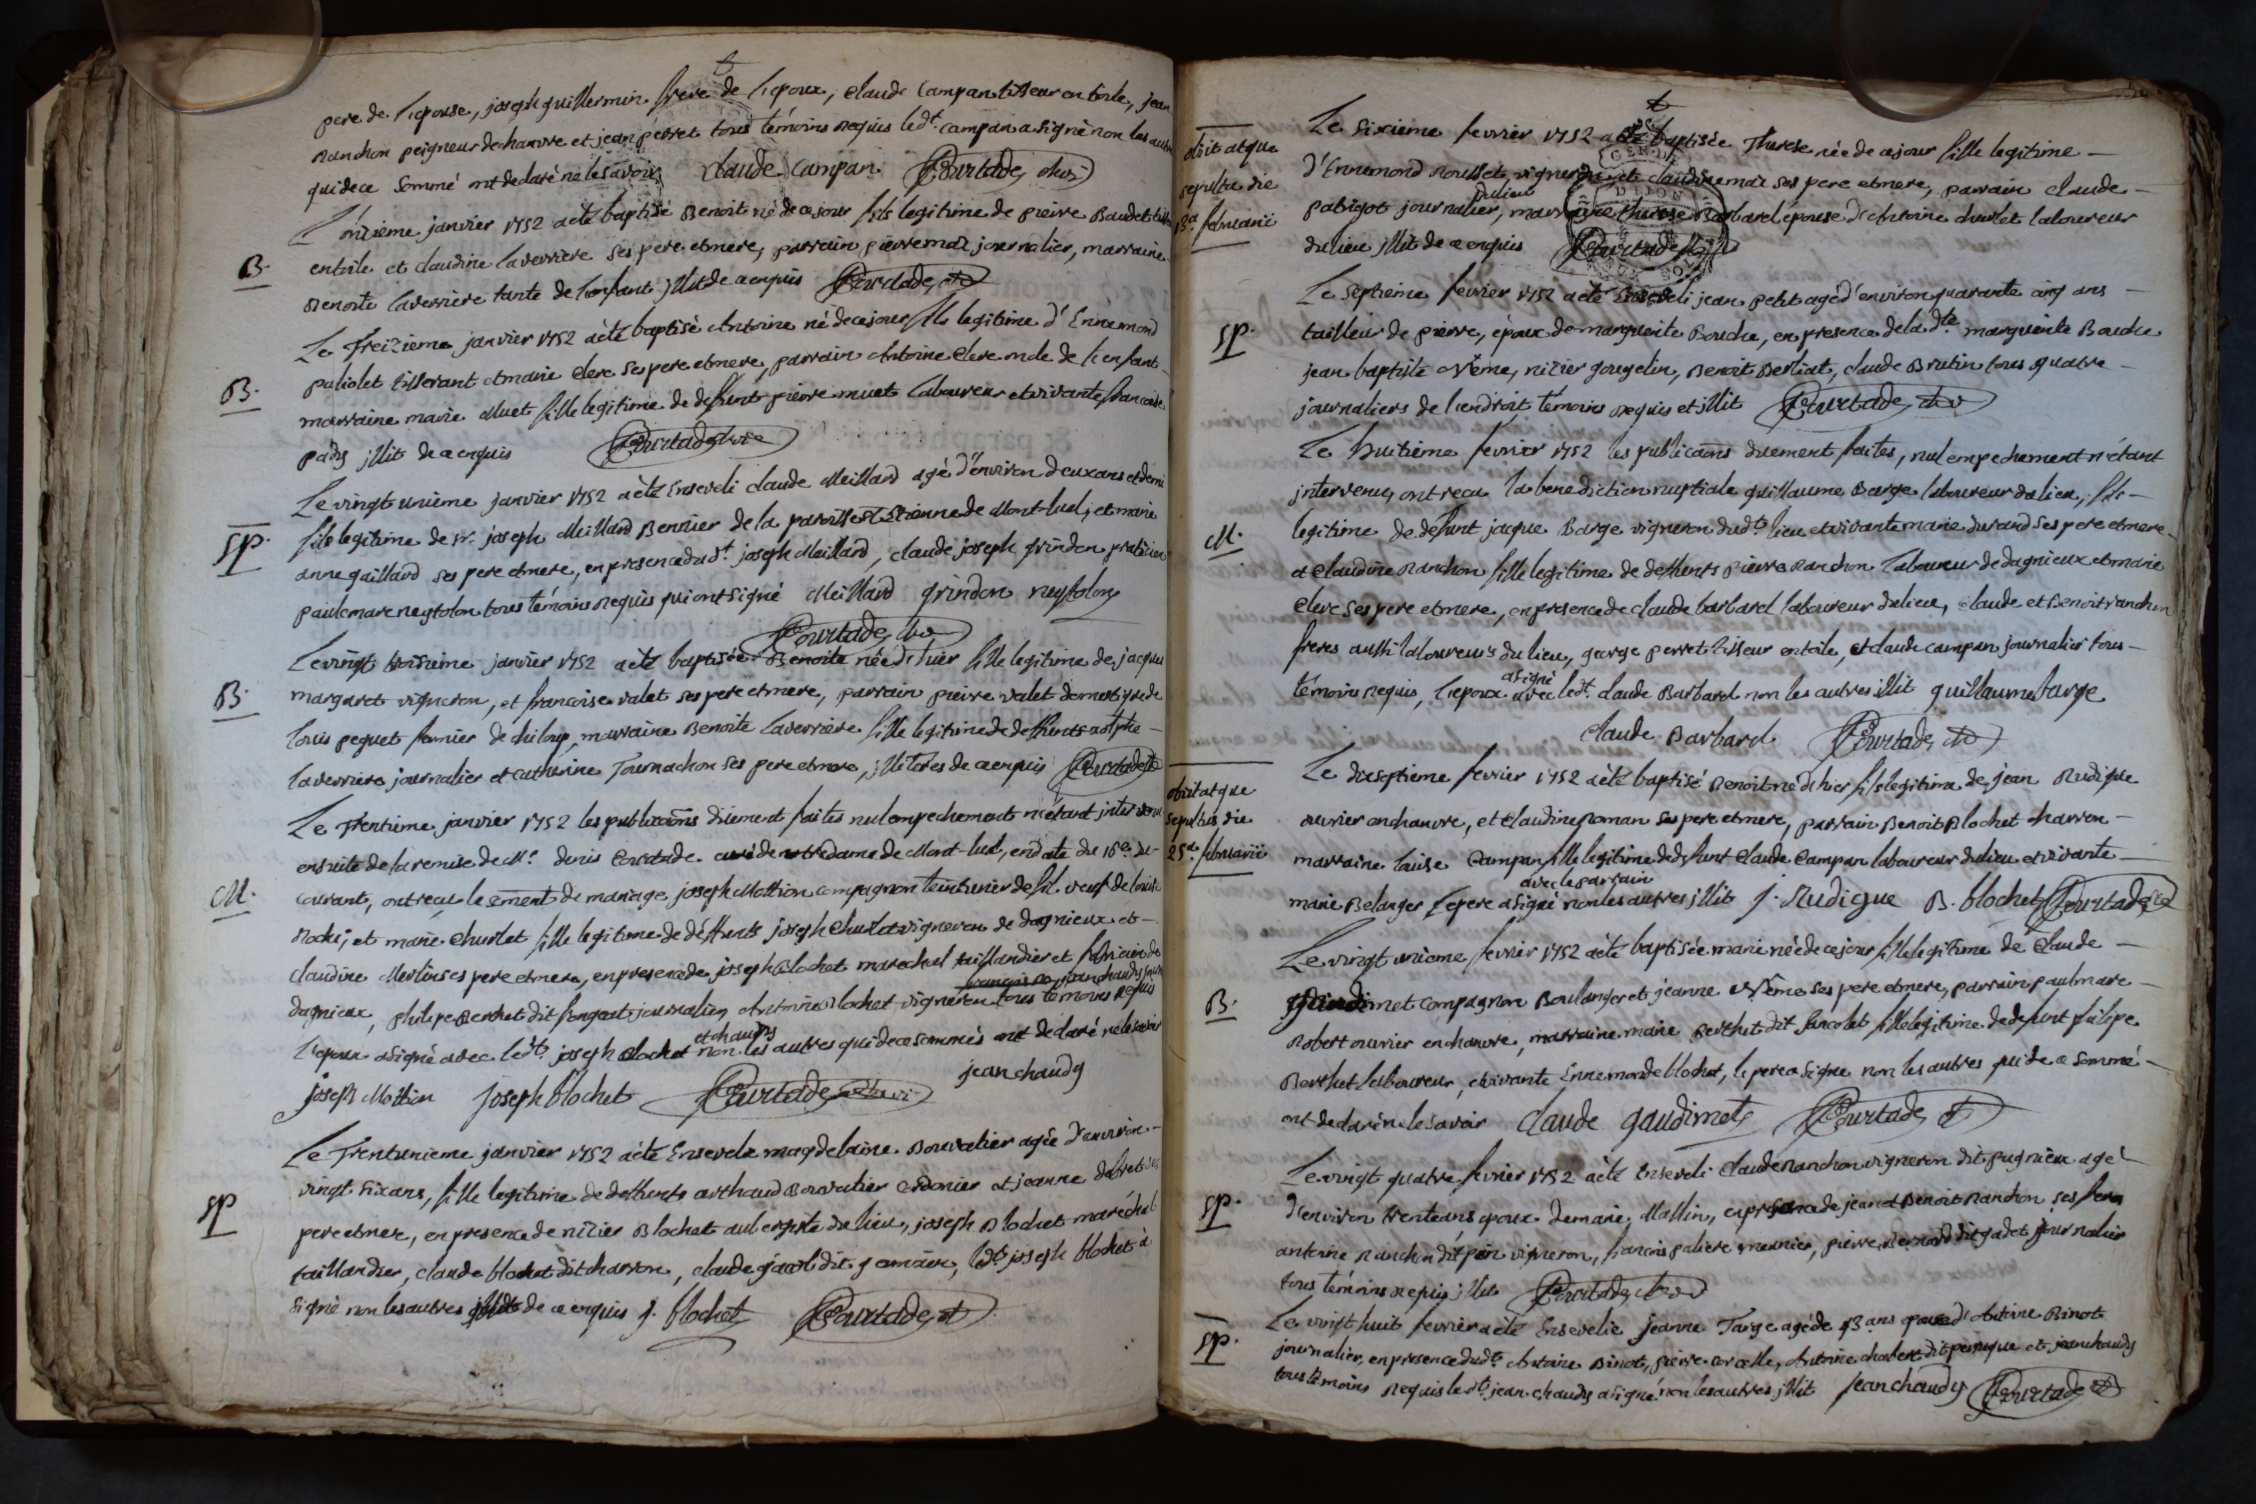 pere de l'epouse, joseph guillermin frere de l'epoux, claude campan tisseur en toile, jean
Ranchon peigneur de chanvre et jean perret tous témoins requis ledt. campan a signé non les autres
qui de ce sommé ont declaré ne le savoir claude campan Courtade
L'onzieme janvier 1752 a été baptisé Benoit né de ce jour fils legitime de pierre Baudet
B.
en toile et claudine laverriere ses pere et mere, parrain pierre maz journalier, marraine
Benoite laverriere tante de l'enfant illit de ce enquis Courtade
Le treizieme janvier 1752 a été baptisé Antoine né de ce jour fils legitime d'Ennemond
B.
paliolet tisserant et marie clerc ses pere et mere, parrain Antoine clerc oncle de l'enfant
marraine marie Muet fille legitime de defunt pierre muet laboureur et vivante francoise
illit de ce enquis Courtade
Le vingt unieme janvier 1752 a été Enseveli claude Meillard agé d'environ deux ans et demi
sp.
fils legitime de sr. joseph Meillard Bennier de la paroisse St Etienne de Mont-luel, et marie
anne gaillard ses pere et mere, en presence dudt. joseph Meillard, claude joseph grindon praticien
paulemare neytolon tous témoins requis qui ont signé Meillard grindon neytolon
Courtade
Le vingt troisieme janvier 1752 a été baptisée Benoite née d'hier fille legitime de jacque
B.
margaret vigneron, et francoise valet ses pere et mere, parrain pierre valet domestique de
louis pequet fermier de chiloup, marraine Benoite laverriere fille legitime de deffunts
laverriere journalier et catherine Tournachon ses pere et mere, illiteres de ce enquis Courtade
Le trentieme janvier 1752 les publicaons düement faites nul empechement n'étant intervenu
ensuite de la remise de Mr. denis Courtade curé de notre dame de Mont-luel, en date du 16e. du
M.
courant, ont recu le sement de mariage joseph Mottion compagnon teinturier de fil veuf de louise
Roche; et marie churlet fille legitime de déffunts joseph churlet vigneron de dagnieux et
claudine Merlin ses pere et mere, en presence de joseph Blochet marechal taillandier et
dagnieux, philipe Berthet dit journalier Antoine Blochet vigneron tous témoins requis
l'epoux a signé avec ledt. joseph Blochet et chaudy non les autres qui de ce sommés ont declaré ne le savoir
joseph Mottion joseph blochet Courtade jean chaudy
Le Trentunieme janvier 1752 a été Ensevelie magdelaine Bouvatier agée d'environ
sp
vingt six ans, fille legitime de deffunts arthaud Bouvatier cordonier et jeanne
pere et mere, en presence de nizier Blochet aubergiste du lieu, joseph Blochet maréchal
taillandier, claude blochet dit charron, claude jacol dit, ledt. joseph blochet a
signé non les autres de ce enquis j. blochet Courtade
Le sixieme fevrier 1752 a été baptisée Therese née de ce jour fille legitime
obiit atque
sepulta die
februarii
d'Ennemond Rousset vigneron et claudine maz ses pere et mere, parrain claude
patrigot journalier, du lieu marraine therese Barbard épouse d'Antoine churlet laboureur
du lieu illit de ce enquis Courtade
Le septieme fevrier 1752 a été Enseveli jean petit agé d'environ quarante cinq ans
sp.
tailleur de pierre, époux de marguerite Bouche, en presence de ladte. marguerite Bouche
jean baptiste, nizier gougelin, Benoit Berliat, claude Brutin tous quatre
journaliers de l'endroit témoins requis et illit Courtade
Le huitieme fevrier 1752 les publicaons duement faites, nul empechement n'étant
intervenu, ont recu la benediction nuptiale guillaume Barge laboureur du lieu, fils
M.
legitime de defunt jacque Barge vigneron dudt. lieu et vivante marie durand ses pere et mere
et claudine Ranchon fille legitime de deffunts pierre Ranchon laboureur de dagnieux et marie
clerc ses pere et mere, en presence de claude barbard laboureur du lieu, claude et Benoit ranchon
freres aussi laboureurs du lieu, george perret tisseur en toile, et claude campan journalier tous
témoins requis, l'epoux a signé avec ledt. claude Barbard non les autres illit guillaume barge
claude Barbard Courtade
Le dixseptieme fevrier 1752 a été baptisé Benoit né d'hier fils legitime de jean Rudigue
obiit atque
sepultus die
25a. februarii
ouvrier en chanvre, et claudine roman ses pere et mere, parrain Benoit Blochet charron
marraine louise campan fille legitime de defunt claude campan laboureur du lieu et vivante
marie Belanger le pere a signé avec le parrain non les autres illit j. Rudigue B. blochet Courtade
Le vingt unieme fevrier 1752 a été baptisée marie née de ce jour fille legitime de claude
B.
gaudimet compagnon Boulanger et jeanne ses pere et mere, parrain paulmare
Robert ouvrier en chanvre, marraine marie Berthet dit fille legitime de defunt philipe
Berthet laboureur, et vivante Ennemonde blochet, le pere a signé non les autres qui de ce sommé
ont declaré ne le savoir claude gaudimet Courtade
Le vingt quatre fevrier 1752 a été Enseveli claude ranchon vigneron dit pugnieux agé
sp.
d'environ trente ans epoux de marie Mallin, en presence de jean et Benoit Ranchon ses freres
antoine Ranchon dit vigneron, francois paliere meunier, pierre Bernard dit gadet journalier
tous témoins requis illit Courtade
Le vingt huit fevrier a été Ensevelie jeanne Targe agée de 43 ans epouse d'Antoine Binot
sp.
journalier, en presence dudt. Antoine Binot, pierre corcelle, Antoine dit perruque et jean chaudy
tous témoins requis ledt. jean chaudy a signé non les autres illit jean chaudy Courtade